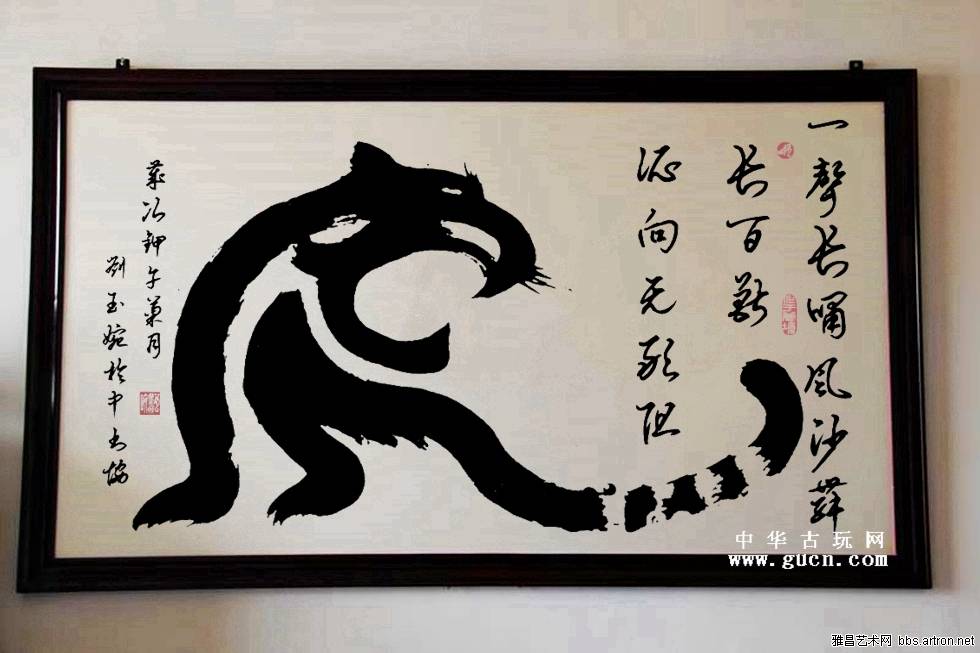 一聲长嘯风沙舞
长百獸
向无敢阻
岁次钾午菊月
劉玉婉於中书协
中华古玩网
www.gucn.com
雅昌艺术网 bbs.artron.net